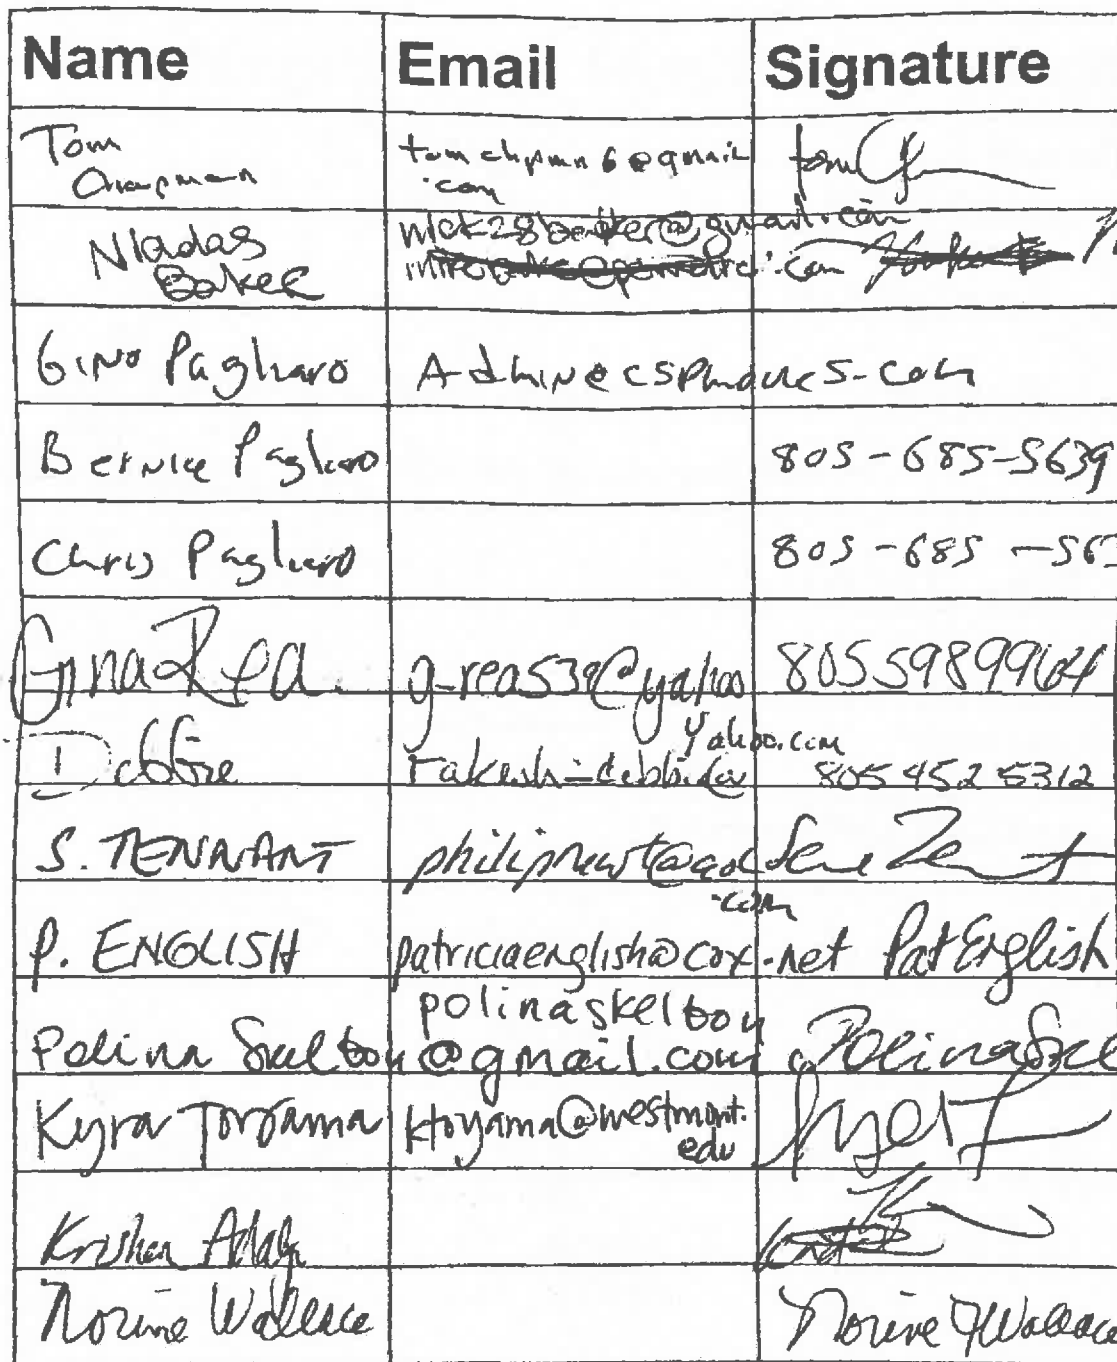 Name Email Signature
Tom Chapman tomchpmn6@gmail.com tom
Baker nick28baker@gmail.com
Gino Pagliaro
Bernice Pagliaro 805-685-5639
Chris Pagliaro 805-685-563
Gina Rea. g-rea539@yahoo 8055989964
Debbie rakesh-debbi@Yahoo.com 805 452 5312
S. TENNANT philipnewt@aol.com
P. ENGLISH patriciaenglish@cox.net Pat English
Polina Skelton polinaskelton@gmail.com Polina Skel
Kyra Toyama ktoyama@westmont.edu
Norine Wallace Norine J Wallace